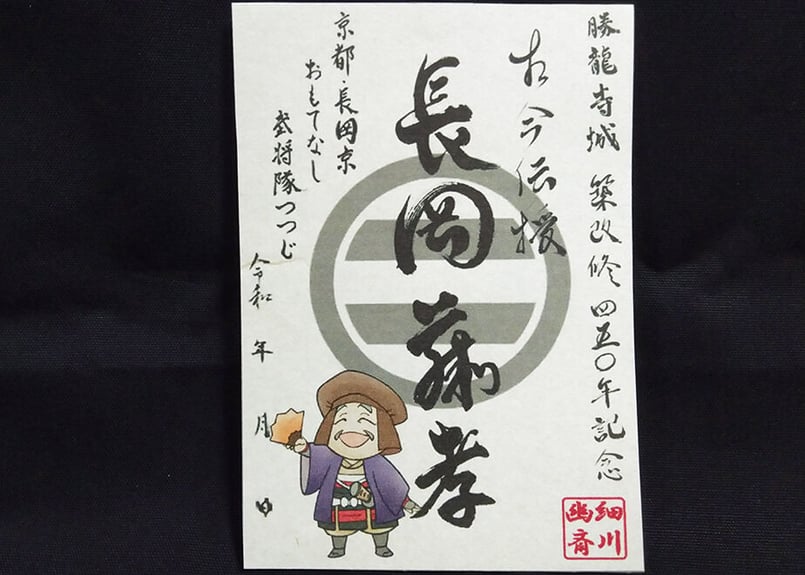 勝龍寺城 築改修 四五〇年記念
古今伝授
長岡藤孝
京都・長岡京
おもてなし
武将隊つつじ
令和 年 月 日
細川
幽斎